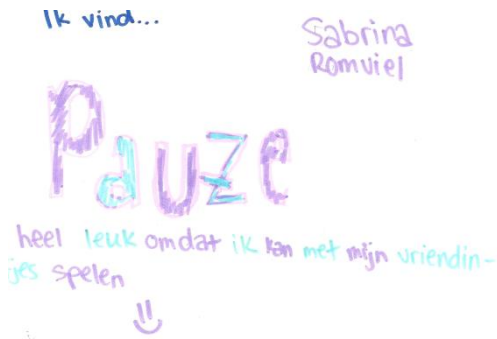 Ik vind...
Sabrina
Romviel
Pauze
heel leuk omdat ik kan met mijn vriendin-
jes spelen